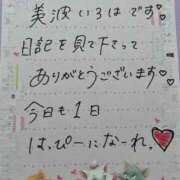 美波いろはです♡
日記を見て下さって
ありがとうございます♡
今日も1日
はっぴーになーれ。♡